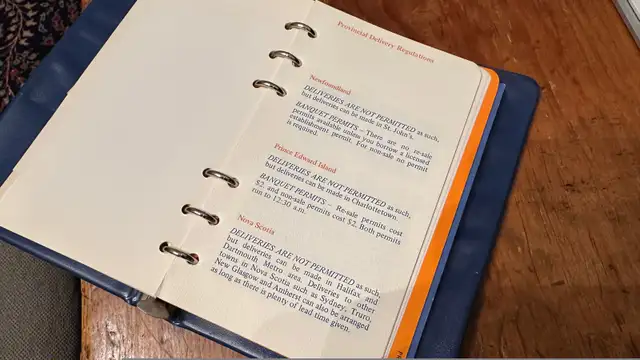 Provincial Delivery Regulations
Newfoundland
DELIVERIES ARE NOT PERMITTED as such,
but deliveries can be made in St. John's.
BANQUET PERMITS – There are no re-sale
permits available unless you burrow a licensed
establishment permit. For non-sale no permit
is required.
Prince Edward Island
DELIVERIES ARE NOT PERMITTED as such,
but deliveries can be made in Charlottetown.
BANQUET PERMITS – Re-sale permits cost
$2. and non-sale permits cost $2. Both permits
run to 12:30 a.m.
Nova Scotia
DELIVERIES ARE NOT PERMITTED as such,
but deliveries can be made in Halifax and
Dartmouth Metro area. Deliveries to other
towns in Nova Scotia such as Sydney, Truro,
New Glasgow and Amherst can also be arranged
as long as there is plenty of lead time given.